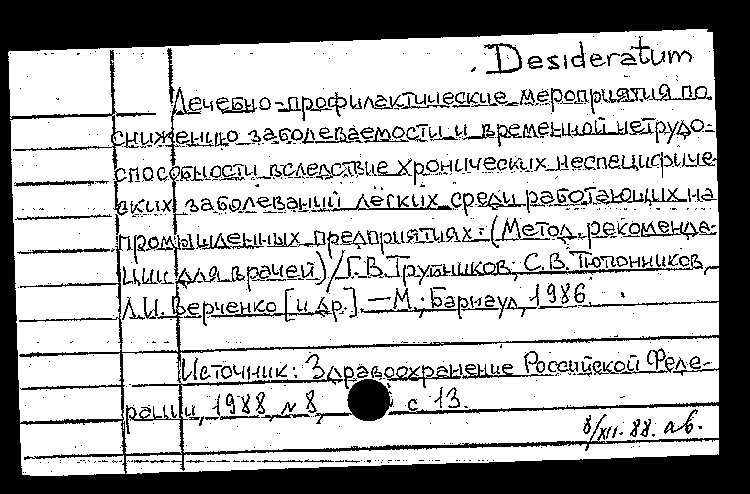 Desideratum
Лечебно-профилактические мероприятия по
снижению заболеваемости и временной нетрудо-
способности вследствие хронических неспецифиче-
ских заболеваний лёгких среди работающих на
промышленных предприятиях: (Метод. рекоменда-
ции для врачей)/Г.В. Трубников, С.В. Тютюнников,
Л.И. Верченко [и др.]. — М.; Барнаул, 1986.
Источник: Здравоохранение Российской Феде-
рации, 1988, № 8, с. 13.
8/XII-88. ав.